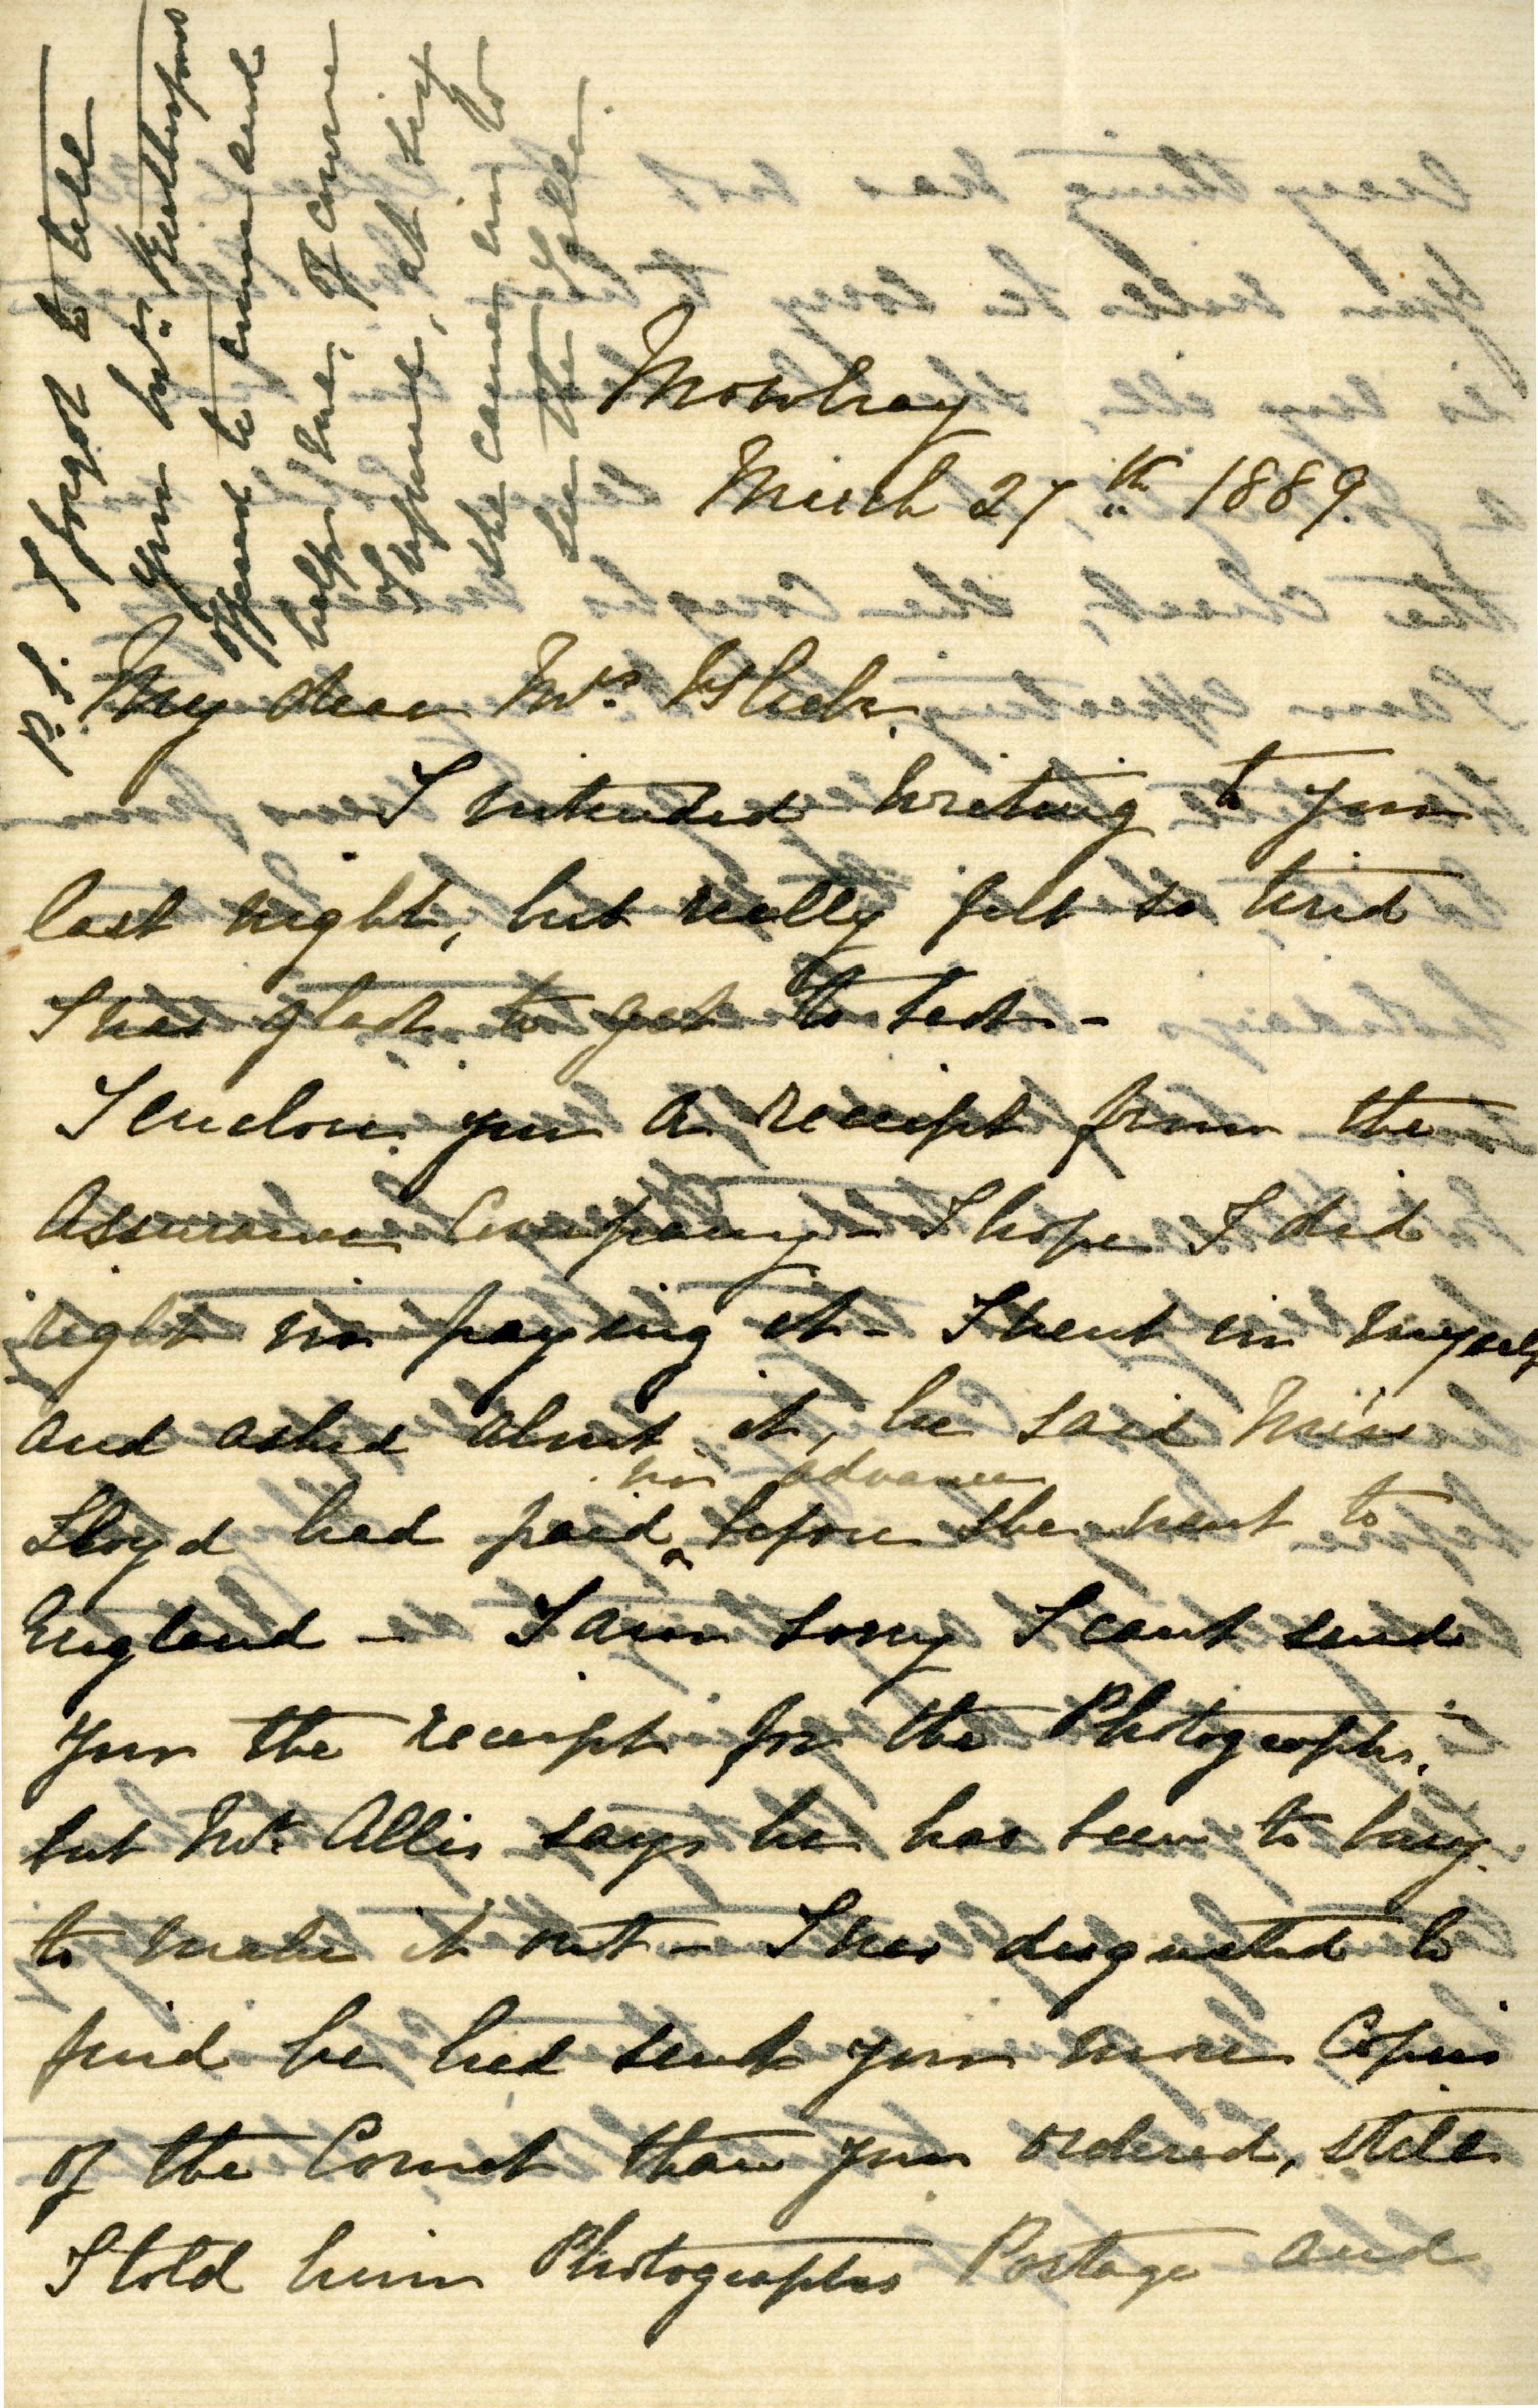 Mowbray
March 27th 1889.
My dear Mrs. Bleek,
I intended writing to you
last night, but really felt so tired
I was glad to get to bed -
I enclose you a receipt from the
Assurance Company - I hope I did
right in paying it - I went in myself
and asked about it, he said Miss
Lloyd had paid in advance before she went to
England - I am sorry I cant send
you the receipt for the Photographs.
but Mr. Allis says he has been to busy
to make it out - I was disgusted to
find he had sent you more Copies
of the Comet than you ordered, still
I told him Photographs Postage and
P.S. I forgot to tell
you Mrs.
offered to come and
help me, of course
I refused, at six
she came in to
see the